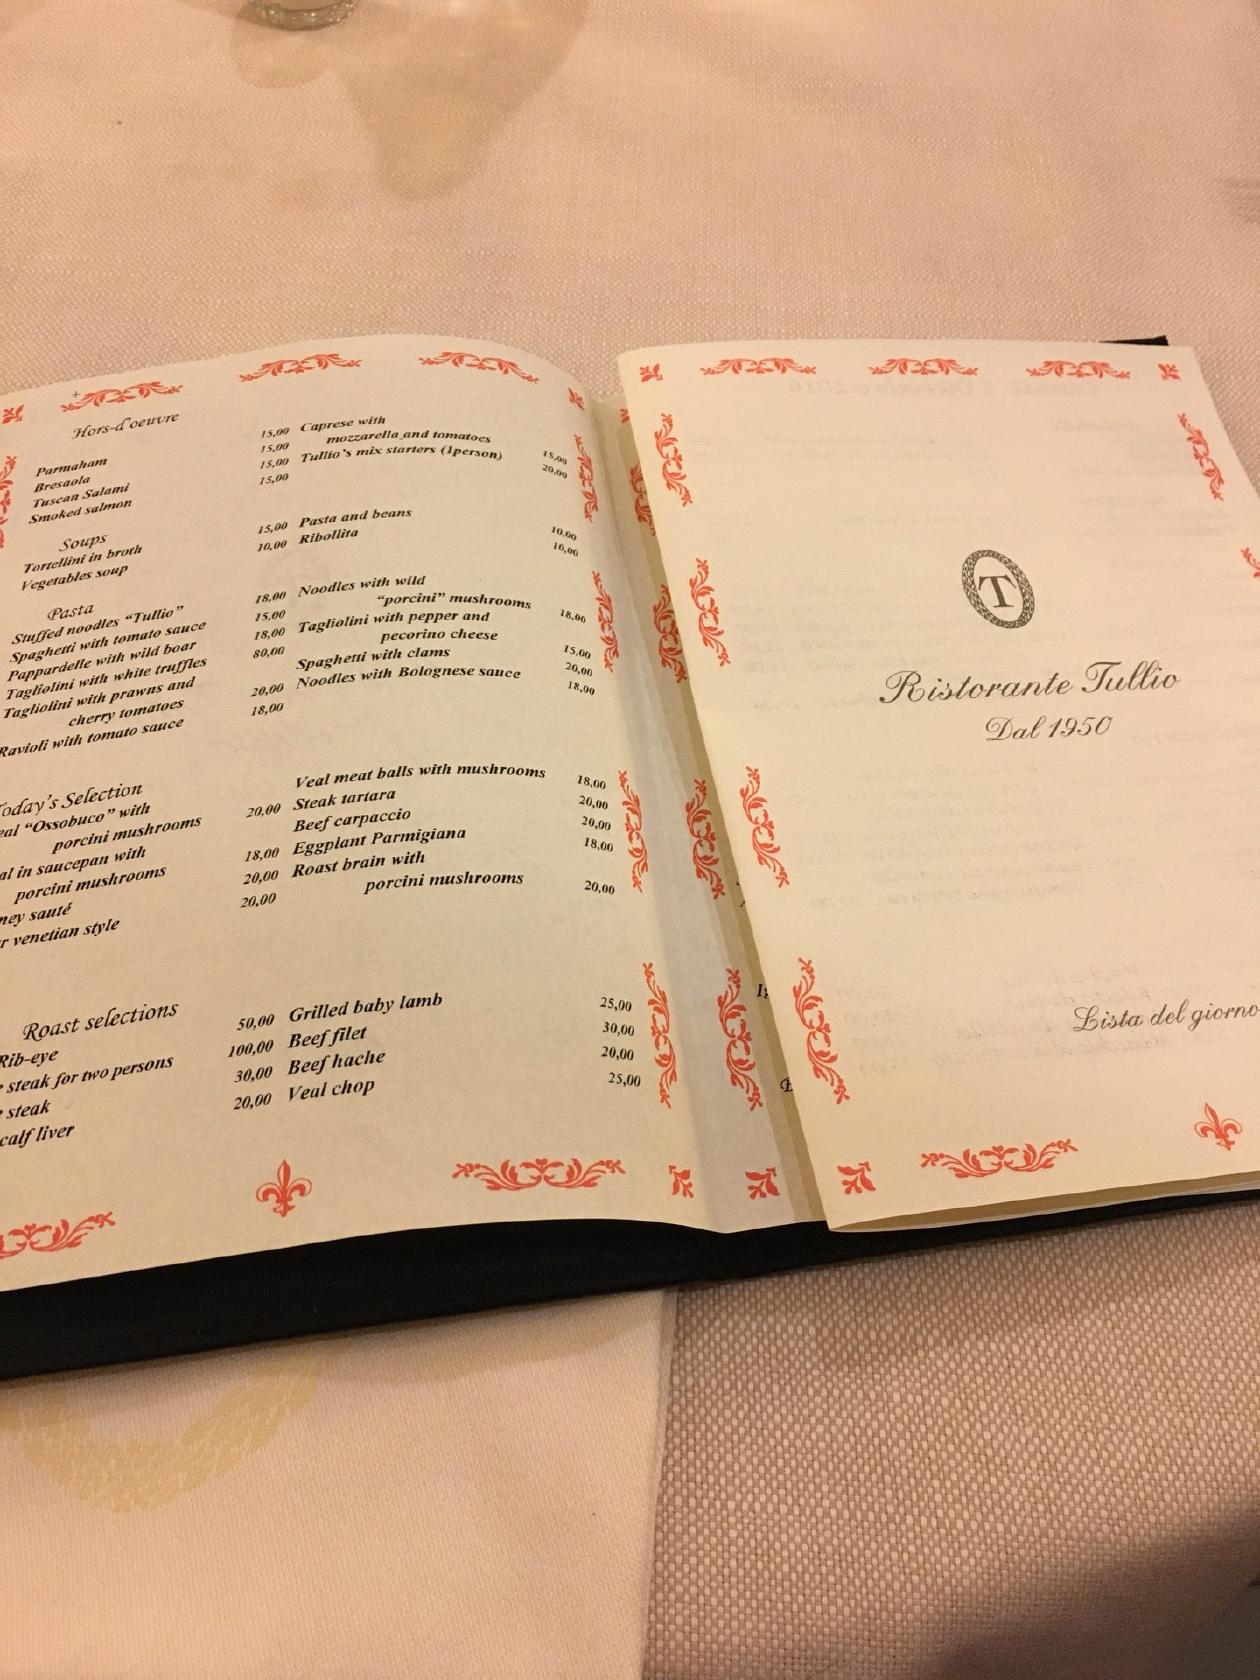 Hors-d'oeuvre
Parmaham 15,00
Bresaola 15,00
Tuscan Salami 15,00
Smoked salmon 15,00
Caprese with
mozzarella and tomatoes 15,00
Tullio's mix starters (1person) 20,00
Soups
Tortellini in broth 15,00
Vegetables soup 10,00
Pasta and beans 10,00
Ribollita 10,00
Pasta
Stuffed noodles "Tullio" 18,00
Spaghetti with tomato sauce 15,00
Pappardelle with wild boar 18,00
Tagliolini with white truffles 80,00
Tagliolini with prawns and
cherry tomatoes 20,00
Ravioli with tomato sauce 18,00
Noodles with wild
"porcini" mushrooms 18,00
Tagliolini with pepper and
pecorino cheese 15,00
Spaghetti with clams 20,00
Noodles with Bolognese sauce 18,00
Today's Selection
"Ossobuco" with
porcini mushrooms 20,00
in saucepan with
porcini mushrooms 18,00
sauté 20,00
venetian style 20,00
Veal meat balls with mushrooms 18,00
Steak tartara 20,00
Beef carpaccio 20,00
Eggplant Parmigiana 18,00
Roast brain with
porcini mushrooms 20,00
Roast selections
Rib-eye 50,00
steak for two persons 100,00
steak 30,00
calf liver 20,00
Grilled baby lamb 25,00
Beef filet 30,00
Beef hache 20,00
Veal chop 25,00
T
Ristorante Tullio
Dal 1950
Lista del giorno